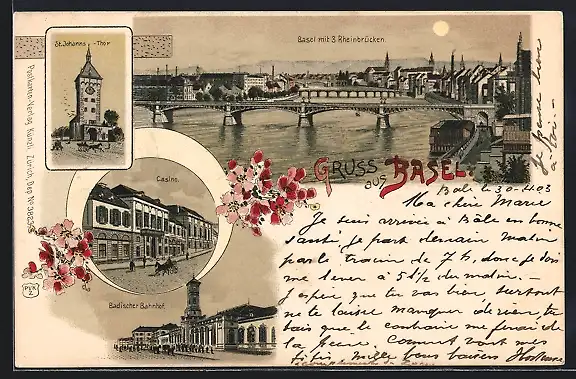 St. Johanns-Thor
Basel mit 3 Rheinbrücken.
Casino.
Badischer Bahnhof.
Gruss aus Basel.
Postkarten-Verlag Künzli Zürich, Dep. No
Bâle le 30-4 03
Ma chère Marie
Je suis arrivée à Bâle en bonne
santé, je part demain matin
par le train de 7 h, donc je dois
me lever à 5 1/2 du matin.-
J'espère que tu vas bien, surtout
ne te laisse manquer de rien, tu
sais que le contraire me ferait de
la peine. Comment vont mes
mille bons baisers